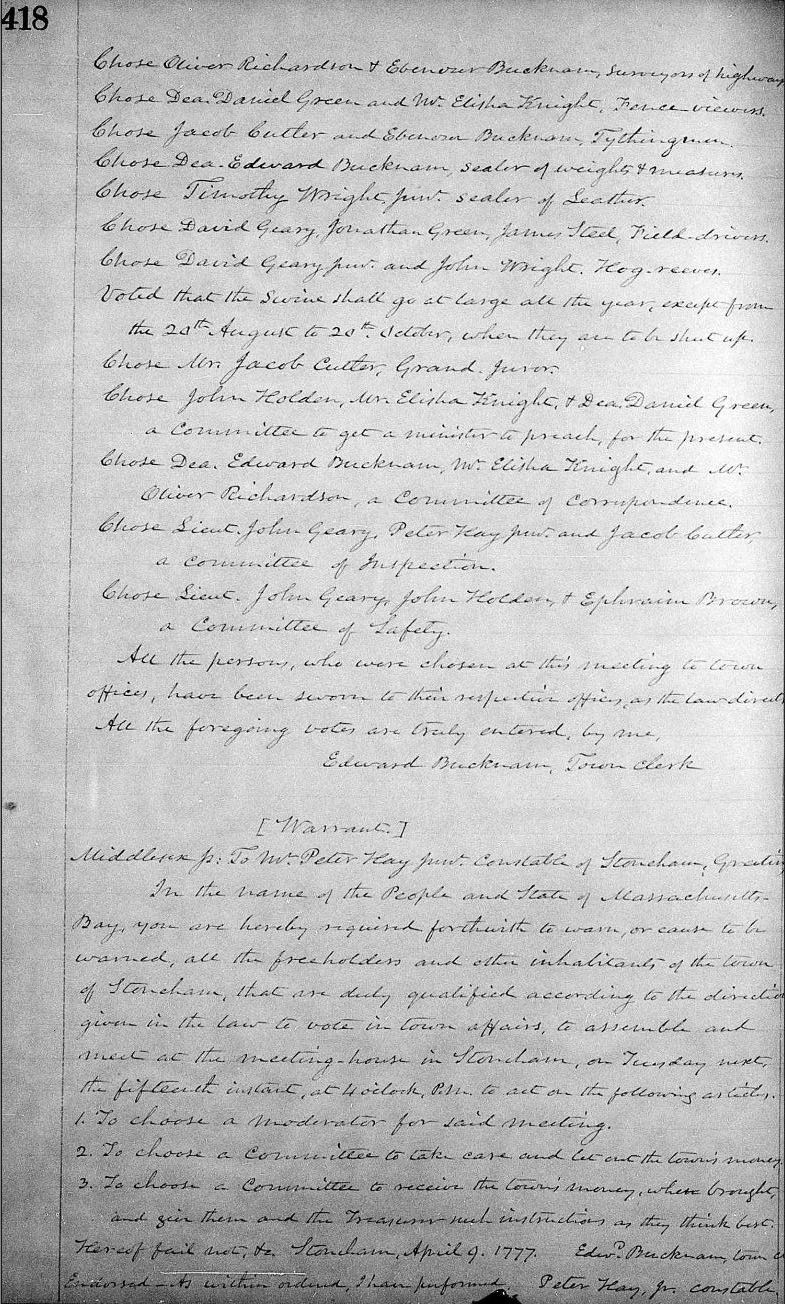 418
Chose Oliver Richardson & Ebenezer Bucknam, Surveyors of highways
Chose Dea. Daniel Green and Mr. Elisha Knight, Fence viewers.
Chose Jacob Cutler and Ebenezer Bucknam, Tythingmen.
Chose Dea. Edward Bucknam, sealer of weights & measures.
Chose Timothy Wright, junr. sealer of Leather.
Chose David Geary, Jonathan Green, James Steel, Field-drivers.
Chose David Geary junr. and John Wright. Hog-reeves.
Voted that the Swine shall go at large all the year, except from
the 20th August to 20th October, when they are to be shut up.
Chose Mr. Jacob Cutler, Grand-Juror.
Chose John Holden, Mr. Elisha Knight, & Dea. Daniel Green,
a Committee to get a minister to preach, for the present.
Chose Dea. Edward Bucknam, Mr. Elisha Knight, and Mr.
Oliver Richardson, a Committee of Correspondence.
Chose Lieut. John Geary, Peter Hay junr. and Jacob Cutler,
a committee of Inspection.
Chose Lieut. John Geary, John Holden, & Ephraim Brown,
a Committee of Safety.
All the persons, who were chosen at this meeting to town
offices, have been sworn to their respective offices, as the law directs
All the foregoing votes are truly entered, by me,
Edward Bucknam, Town Clerk
[Warrant.]
Middlesex ss: To Mr. Peter Hay junr. Constable of Stoneham, Greeting
In the name of the People and State of Massachusetts-
Bay, you are hereby required forthwith to warn, or cause to be
warned, all the freeholders and other inhabitants of the town
of Stoneham, that are duly qualified according to the direction
given in the law to vote in town affairs, to assemble and
meet at the meeting-house in Stoneham, on Tuesday next,
the fifteenth instant, at 4 o'clock, P.M. to act on the following articles.
1. To choose a moderator for said meeting.
2. To choose a Committee to take care and let out the town's money.
3. To choose a Committee to receive the town's money, when brought,
and give them and the Treasurer such instructions as they think best.
Hereof fail not, &c. Stoneham, April 9. 1777. Edwd. Bucknam, town
Endorsed - As within ordered, I have performed, Peter Hay, Jr. constable.